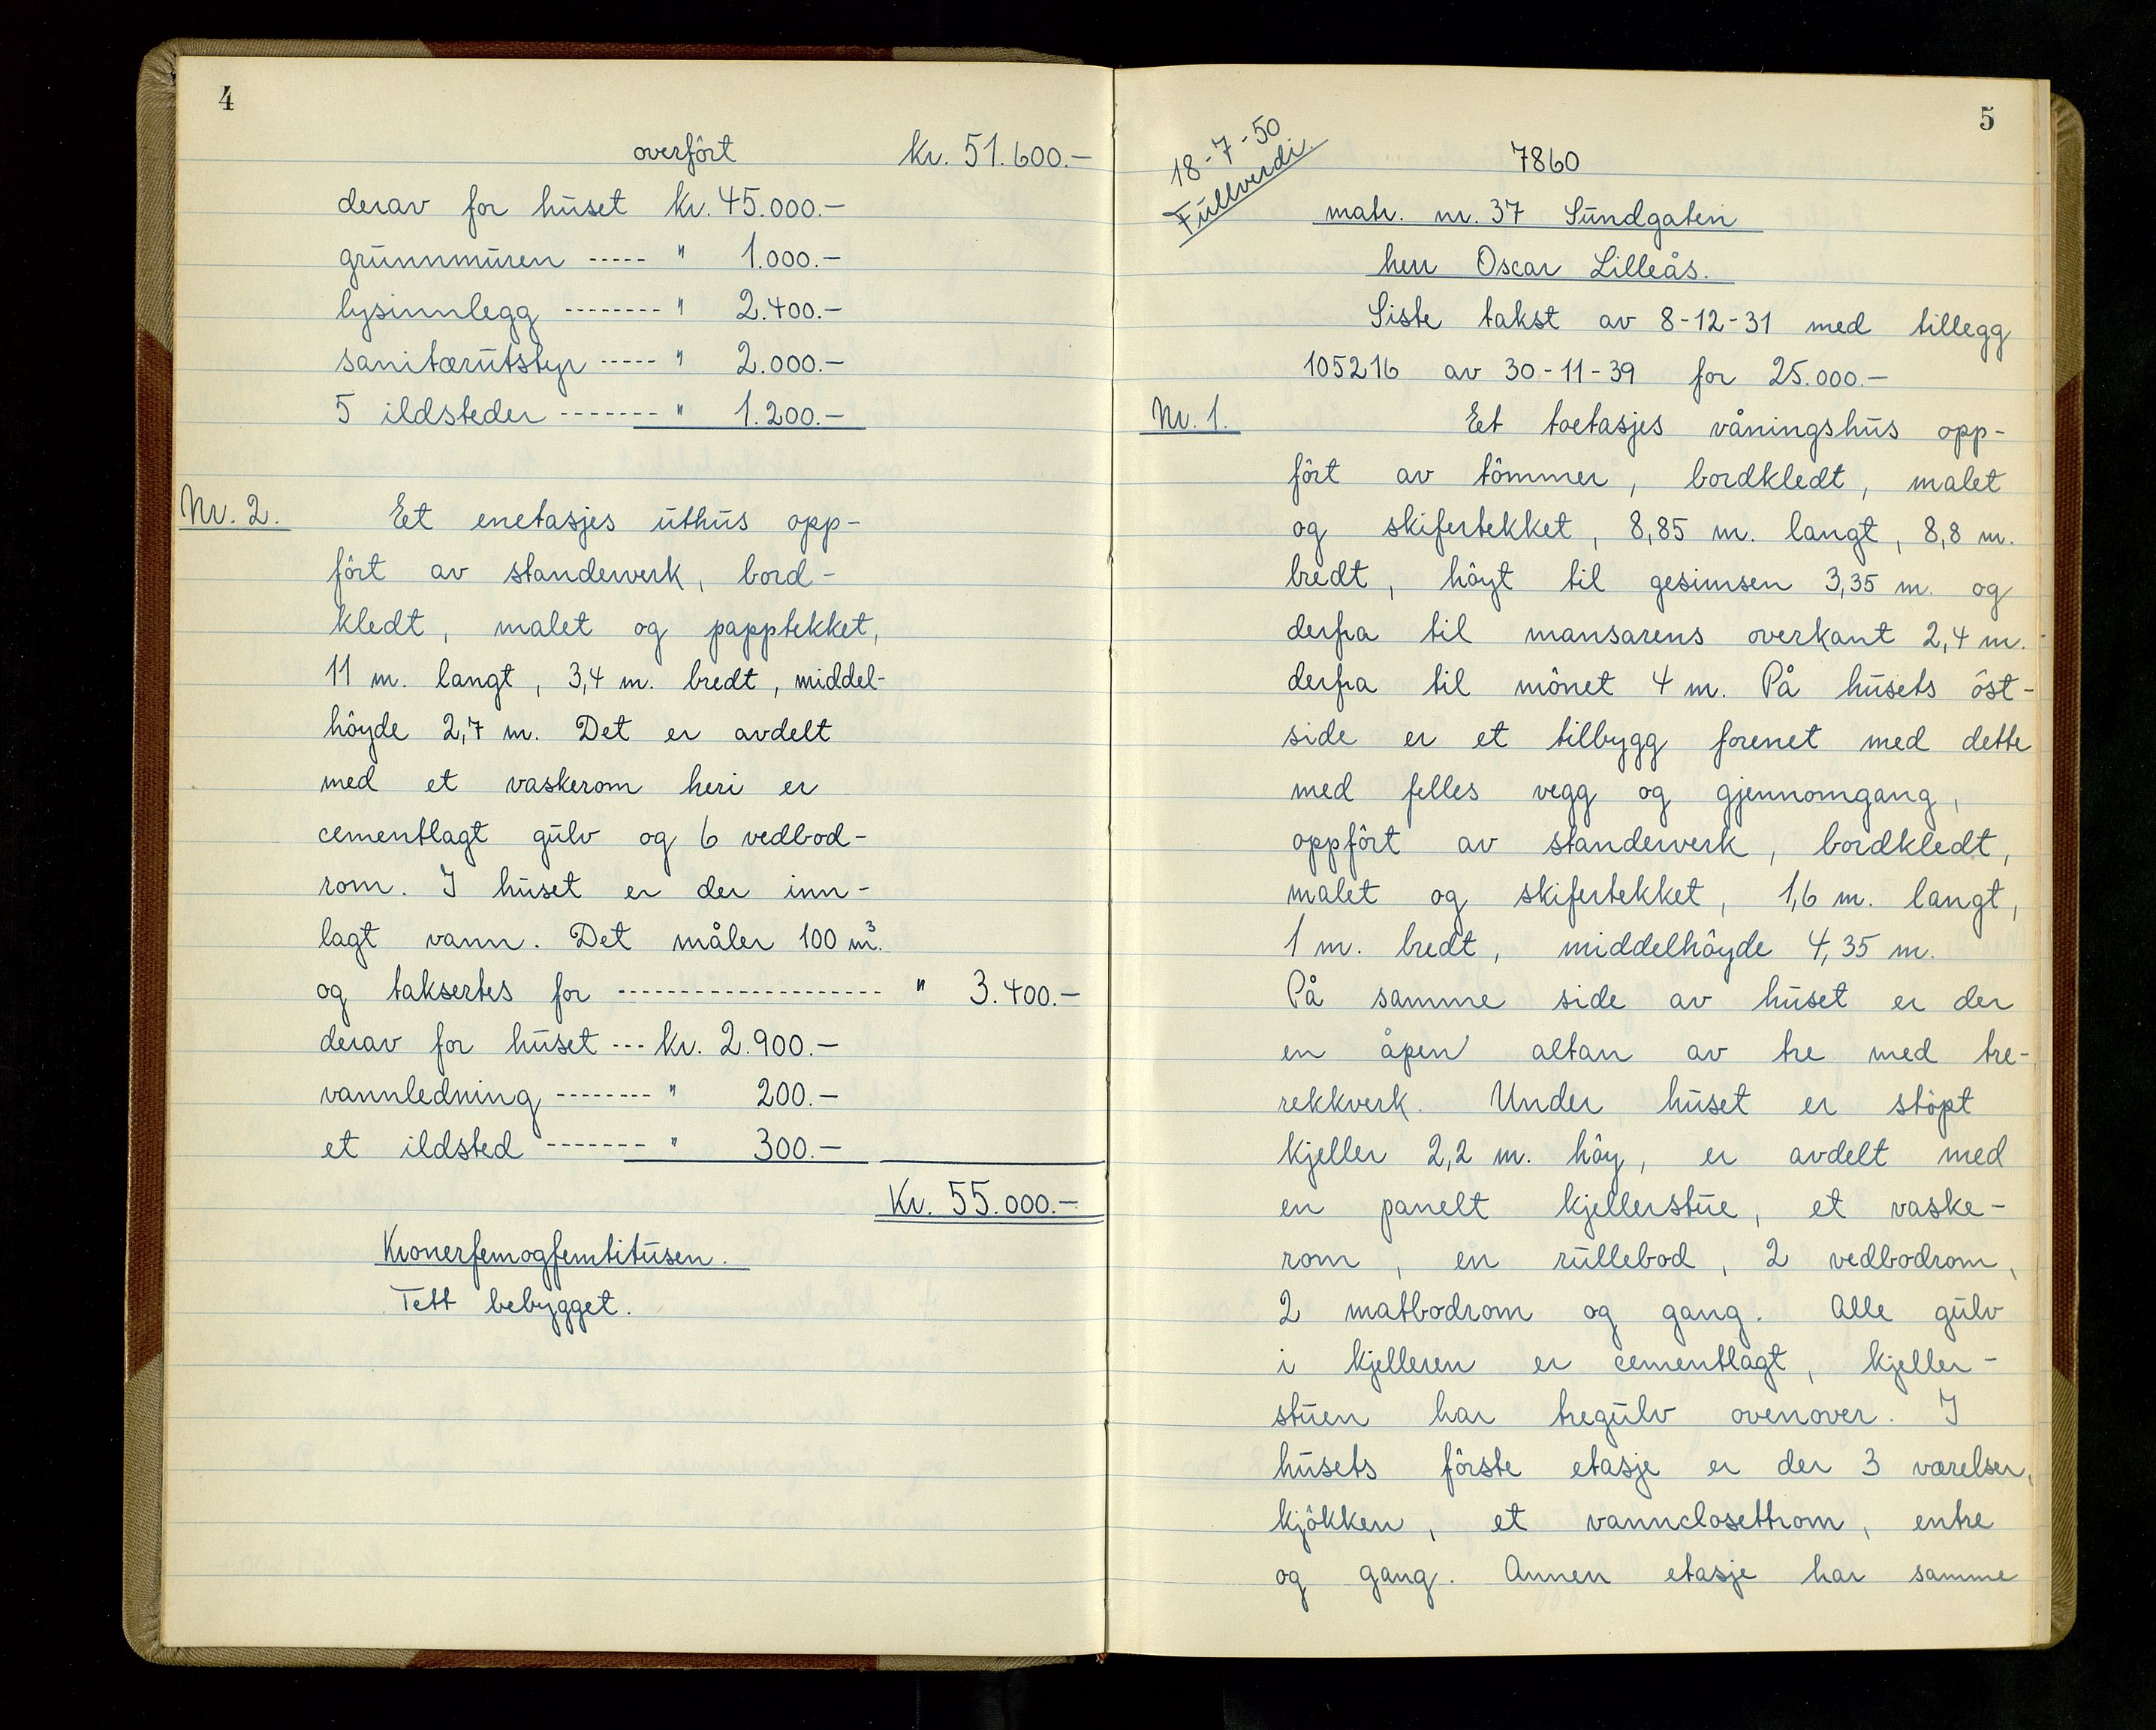 4
overført kr. 51.600.-
derav for huset kr. 45.000.-
grunnmuren ----- " 1.000.-
lysinnlegg -------- " 2.400.-
sanitærutstyr ----- " 2.000.-
5 ildsteder ------- " 1.200.-
Nr. 2. Et enetasjes uthus opp-
ført av standerverk, bord-
kledt, malet og papptekket,
11 m. langt, 3,4 m. bredt, middel-
høyde 2,7 m. Det er avdelt
med et vaskerom heri er
cementlagt gulv og 6 vedbod-
rom. I huset er der inn-
lagt vann. Det måler 100 m³.
og taksertes for -------------------- " 3.400.-
derav for huset --- kr. 2.900.-
vannledning -------- " 200.-
et ildsted ------- " 300.-
Kr. 55.000.-
Kronerfemogfemtitusen.
Tett bebygget.
5
18-7-50
Fullverdi.
7860
matr. nr. 37 Sundgaten
herr Oscar Lilleås.
Siste takst av 8-12-31 med tillegg
105216 av 30-11-39 for 25.000.-
Nr. 1. Et toetasjes våningshus opp-
ført av tømmer, bordkledt, malet
og skifertekket, 8,85 m. langt, 8,8 m.
bredt, høyt til gesimsen 3,35 m. og
derfra til mansarens overkant 2,4 m.
derfra til mønet 4 m. På husets øst-
side er et tilbygg forenet med dette
med felles vegg og gjennomgang,
oppført av standerverk, bordkledt,
malet og skifertekket, 1,6 m. langt,
1 m. bredt, middelhøyde 4,35 m.
På samme side av huset er der
en åpen altan av tre med tre-
rekkverk. Under huset er støpt
kjeller 2,2 m. høy, er avdelt med
en panelt kjellerstue, et vaske-
rom, en rullebod, 2 vedbodrom,
2 matbodrom og gang. Alle gulv
i kjelleren er cementlagt, kjeller-
stuen har tregulv ovenover. I
husets første etasje er der 3 værelser,
kjøkken, et vannclosettrom, entre
og gang. Annen etasje har samme